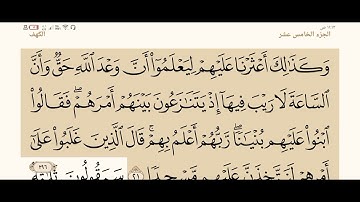 الجزء الخامس عشر
الكهف
وَكَذَٰلِكَ أَعْثَرْنَا عَلَيْهِمْ لِيَعْلَمُوٓا۟ أَنَّ وَعْدَ ٱللَّهِ حَقٌّ وَأَنَّ
ٱلسَّاعَةَ لَا رَيْبَ فِيهَآ إِذْ يَتَنَٰزَعُونَ بَيْنَهُمْ أَمْرَهُمْ ۖ فَقَالُوا۟
ٱبْنُوا۟ عَلَيْهِم بُنْيَٰنًا ۖ رَّبُّهُمْ أَعْلَمُ بِهِمْ ۚ قَالَ ٱلَّذِينَ غَلَبُوا۟ عَلَىٰٓ
أَمْرِهِمْ لَنَتَّخِذَنَّ عَلَيْهِم مَّسْجِدًا ٢١ سَيَقُولُونَ ثَلَٰثَةٌ
٢٩٦